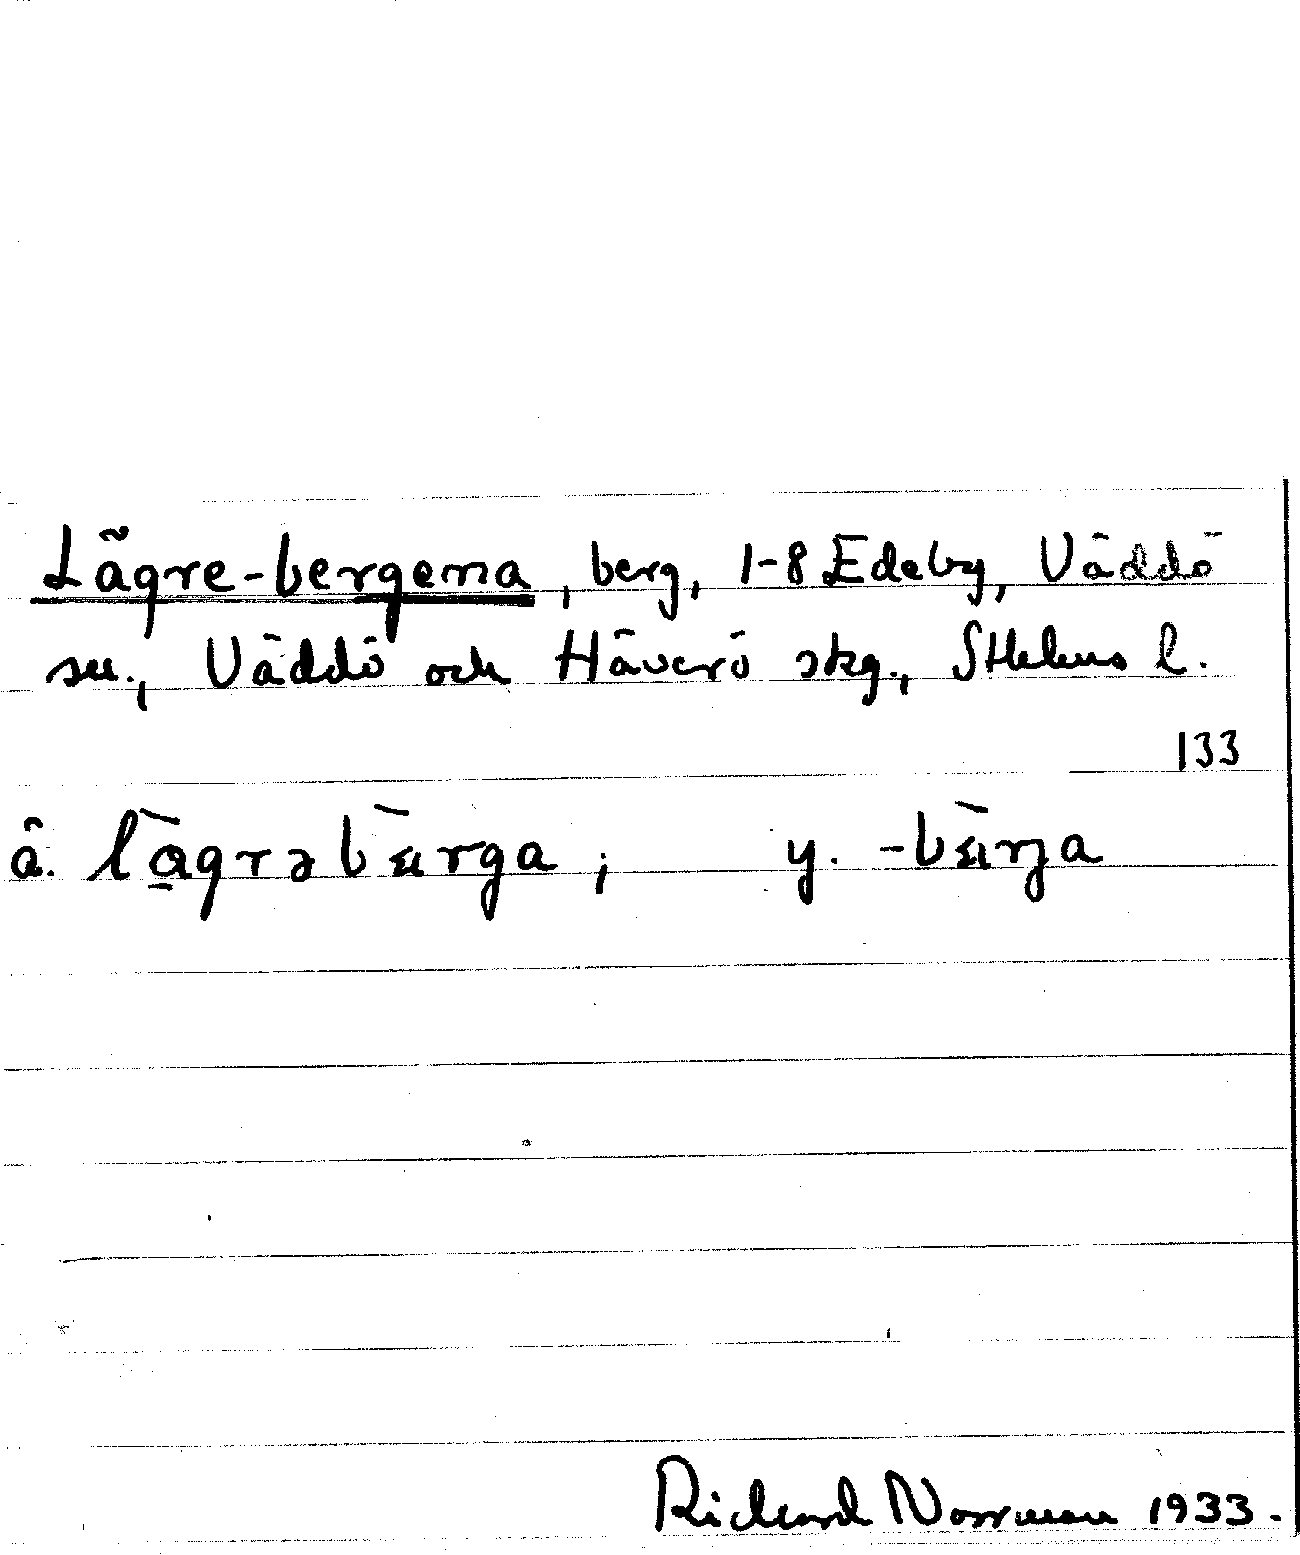 Lägre-bergema, berg, 1-8 Edeby, Väddö
sn., Väddö och Häverö skg., Sthlms l.
133
ä. lägrəbærga; y. -bærja
Richard Norrman 1933.